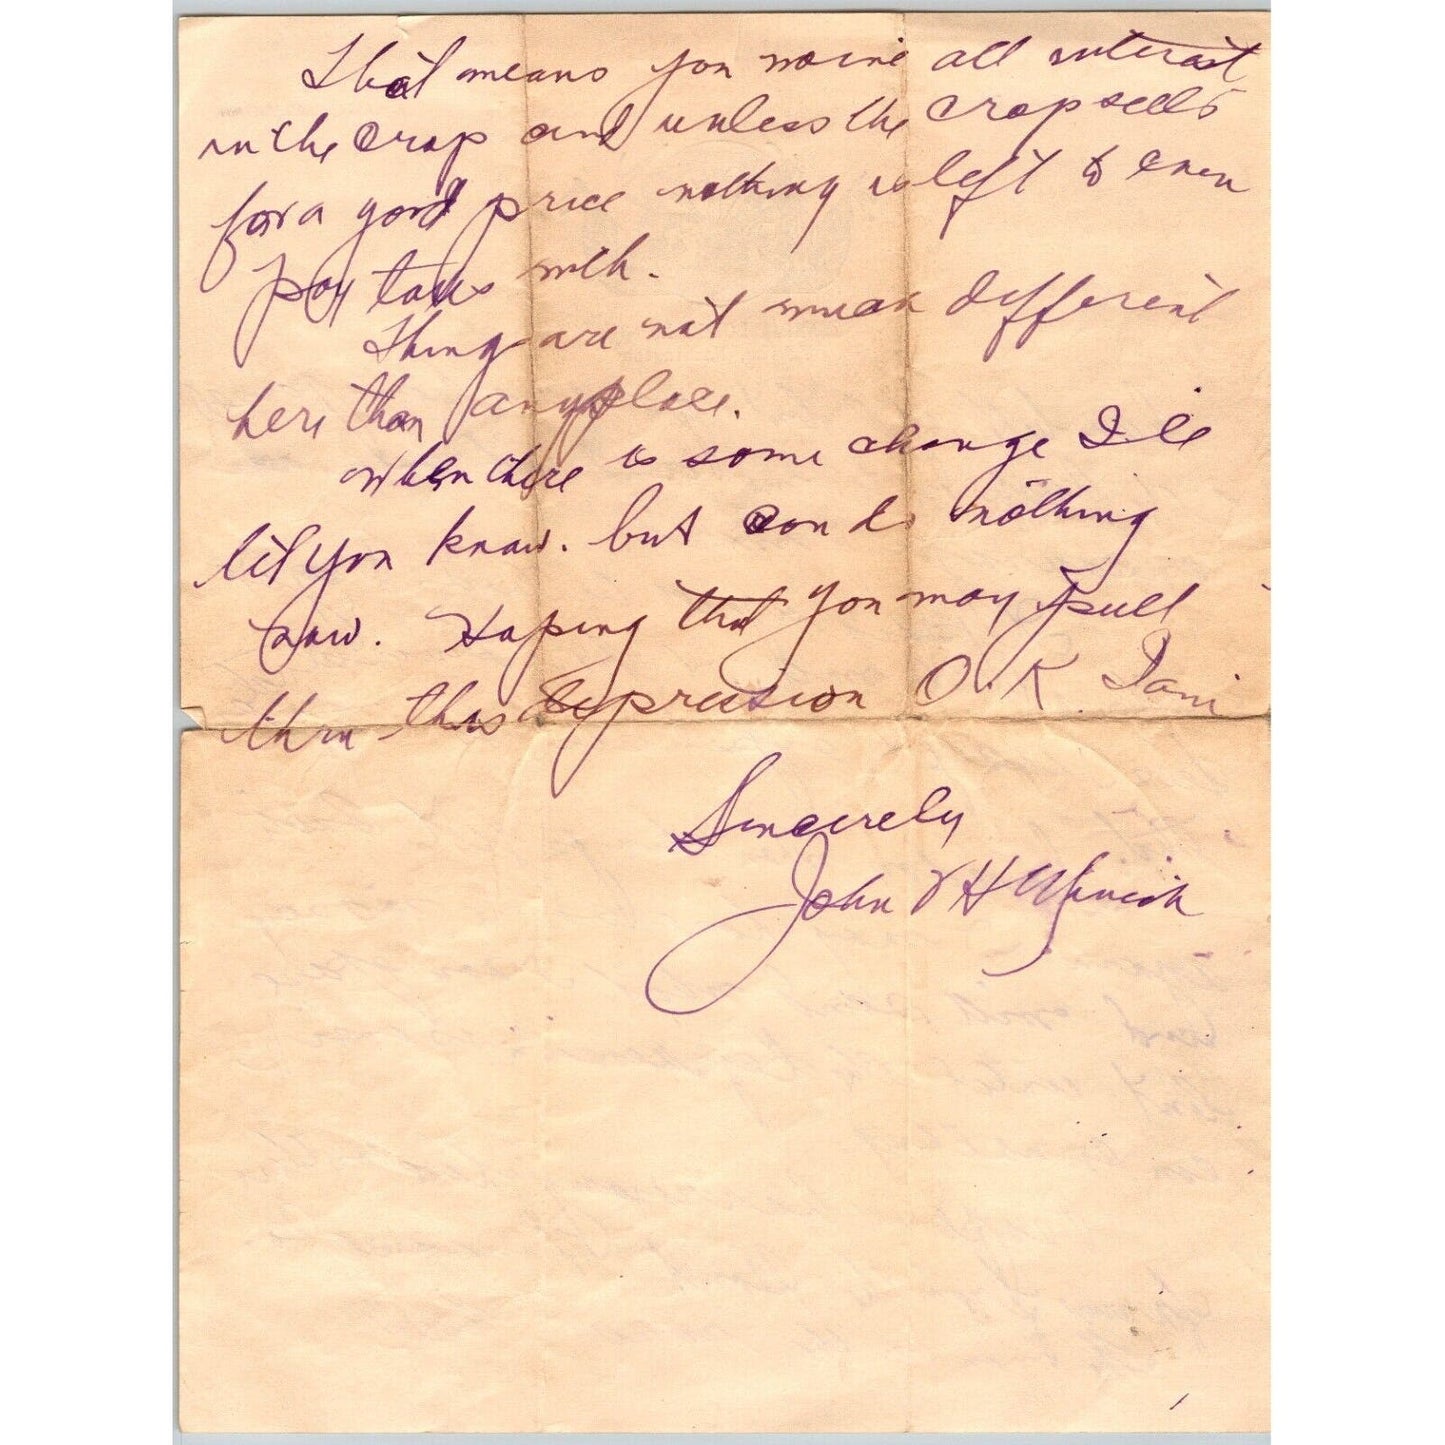 That means you waive all interest
in the crop and unless the crop sells
for a good price nothing is left to even
pay taxes with.
Things are not much different
here than anyplace.
when there is some change I'll
let you know. but can do nothing
now. Hoping that you may pull
thru this depression O.K. I am
Sincerely
John H